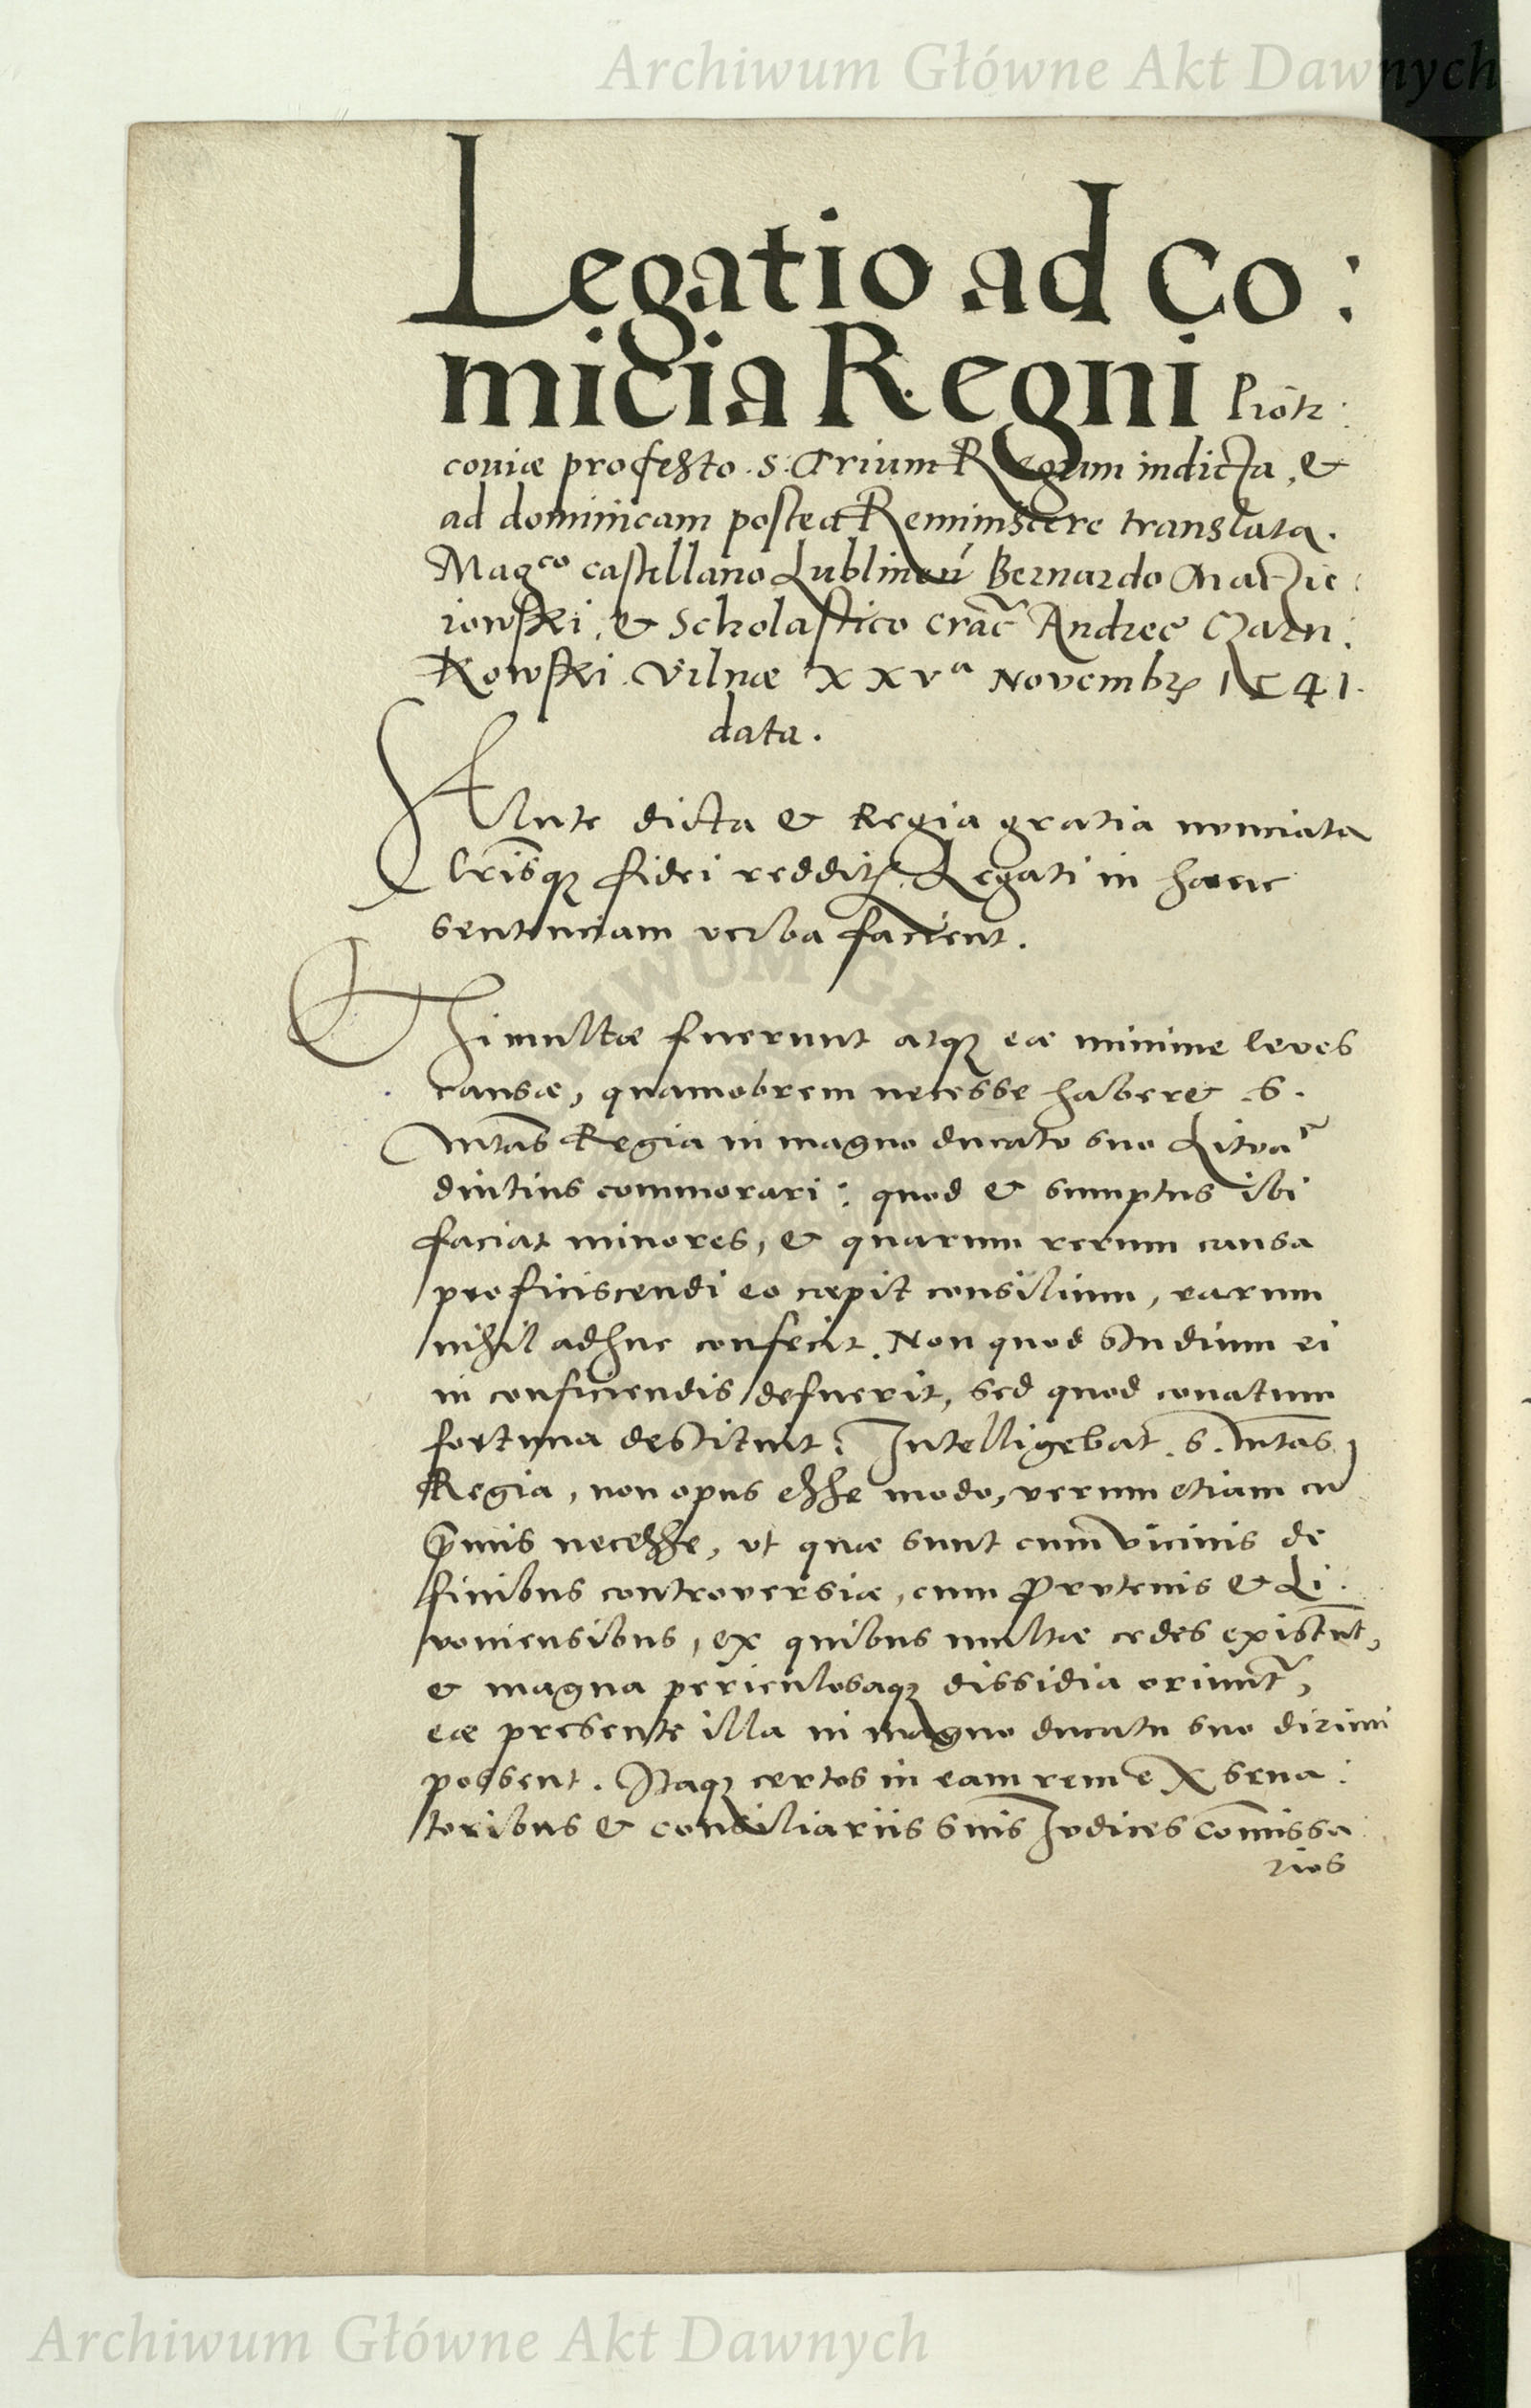 Archiwum Główne Akt Dawnych
Legatio ad Co:
micia Regni Piotr:
coviæ pro festo .S. Trium Regum indicta, &
ad dominicam postea Reminiscere translata.
Mag^co castellano Lublineñ Bernardo Matzie:
iowski, & Scholastico Crac̃ Andreę Czarn:
kowski. Vilnæ XXV^a Novembrꝭ 1541.
data.
Ante dicta & Regia gratia nunciata
lr̃isqꝫ fidei redditꝭ. Legati in hanc
sentenciam verba facient.
Et si multæ fuerunt atqꝫ eæ minime leves
causæ, quamobrem necesse haberet .S.
Mtas Regia in magno ducatu suo Litva᷈
diutius commorari: quod & sumptus ibi
faciat minores, & quarum rerum causa
proficiscendi eo cæpit consilium, earum
nihil adhuc confecit. Non quod studium ei
in conficiendis defuerit, sed quod conatum
fortuna destituit: Intelligebat .S. Mtas
Regia, non opus esse modo, verum etiam cũ
pr̃mis necesse, ut quæ sunt cum vicinis de
finibus controversiæ, cum Prutenis & Li:
voniensibus, ex quibus multæ cedes existũt,
& magna periculosaqꝫ dissidia oriunt᷈,
eæ presente illa in magno ducatu suo dirimi
possent. Itaqꝫ certos in eam rem ex sena:
toribus & consiliariis suis Iudices Com̃issa:
rios
Archiwum Główne Akt Dawnych